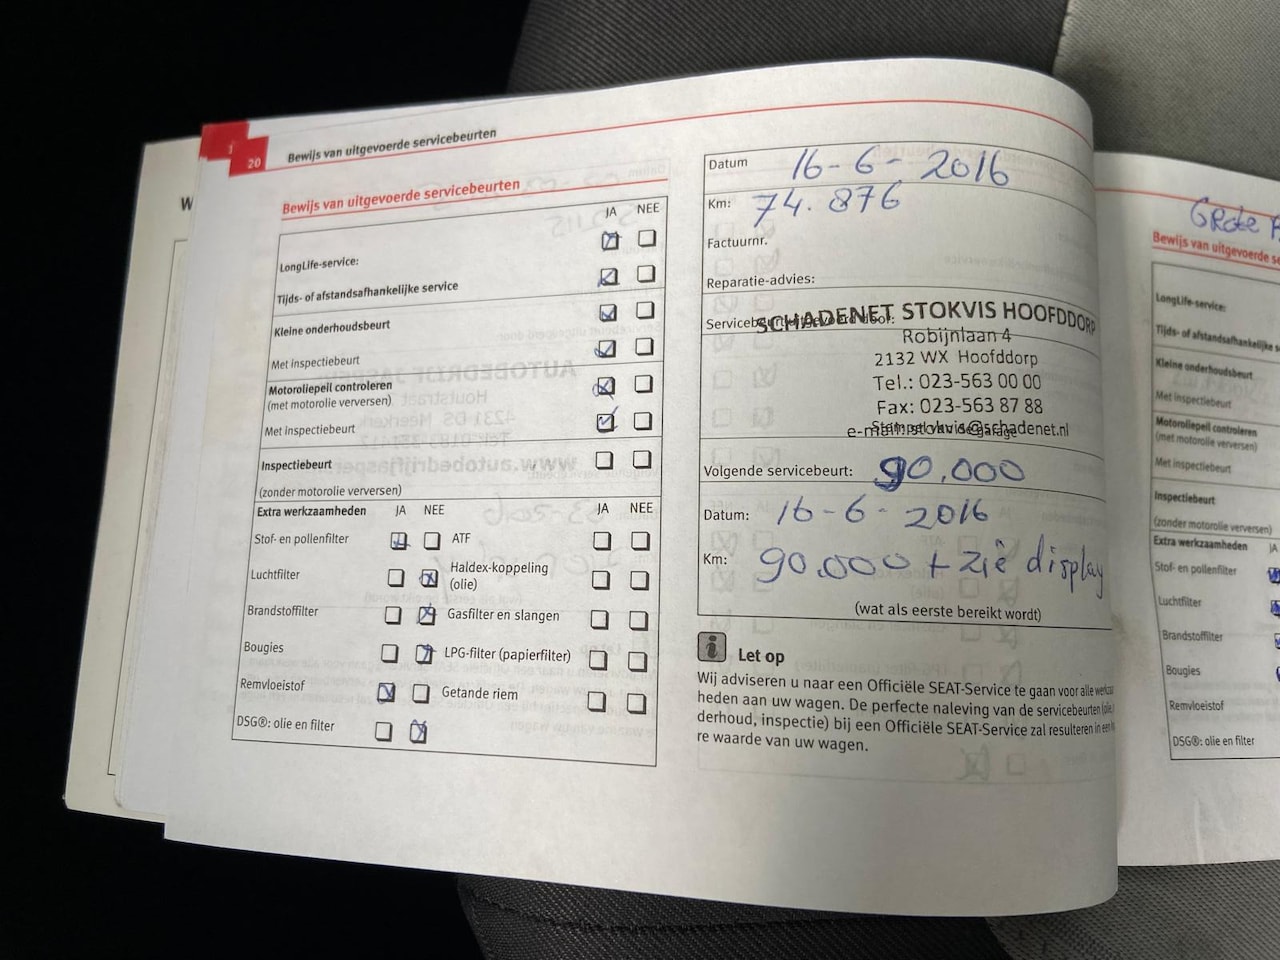 1
20
Bewijs van uitgevoerde servicebeurten
Bewijs van uitgevoerde servicebeurten
JA NEE
LongLife-service:
Tijds- of afstandsafhankelijke service
Kleine onderhoudsbeurt
Met inspectiebeurt
Motoroliepeil controleren
(met motorolie verversen)
Met inspectiebeurt
Inspectiebeurt
(zonder motorolie verversen)
Extra werkzaamheden JA NEE JA NEE
Stof- en pollenfilter ATF
Luchtfilter Haldex-koppeling
(olie)
Brandstoffilter Gasfilter en slangen
Bougies LPG-filter (papierfilter)
Remvloeistof Getande riem
DSG®: olie en filter
Datum 16-6-2016
Km: 74.876
Factuurnr.
Reparatie-advies:
Servicebeurt uitgevoerd door:
SCHADENET STOKVIS HOOFDDORP
Robijnlaan 4
2132 WX Hoofddorp
Tel.: 023-563 00 00
Fax: 023-563 87 88
e-mail: stokvis@schadenet.nl
Volgende servicebeurt: 90.000
Datum: 16-6-2016
Km: 90.000 + zie display
(wat als eerste bereikt wordt)
i Let op
Wij adviseren u naar een Officiële SEAT-Service te gaan voor alle
heden aan uw wagen. De perfecte naleving van de servicebeurten
derhoud, inspectie) bij een Officiële SEAT-Service zal resulteren in een
re waarde van uw wagen.
W
Grote
Bewijs van uitgevoerde se
LongLife-service:
Tijds- of afstandsafhankelijke s
Kleine onderhoudsbeurt
Met inspectiebeurt
Motoroliepeil controleren
(met motorolie verversen)
Met inspectiebeurt
Inspectiebeurt
(zonder motorolie verversen)
Extra werkzaamheden JA
Stof- en pollenfilter
Luchtfilter
Brandstoffilter
Bougies
Remvloeistof
DSG®: olie en filter